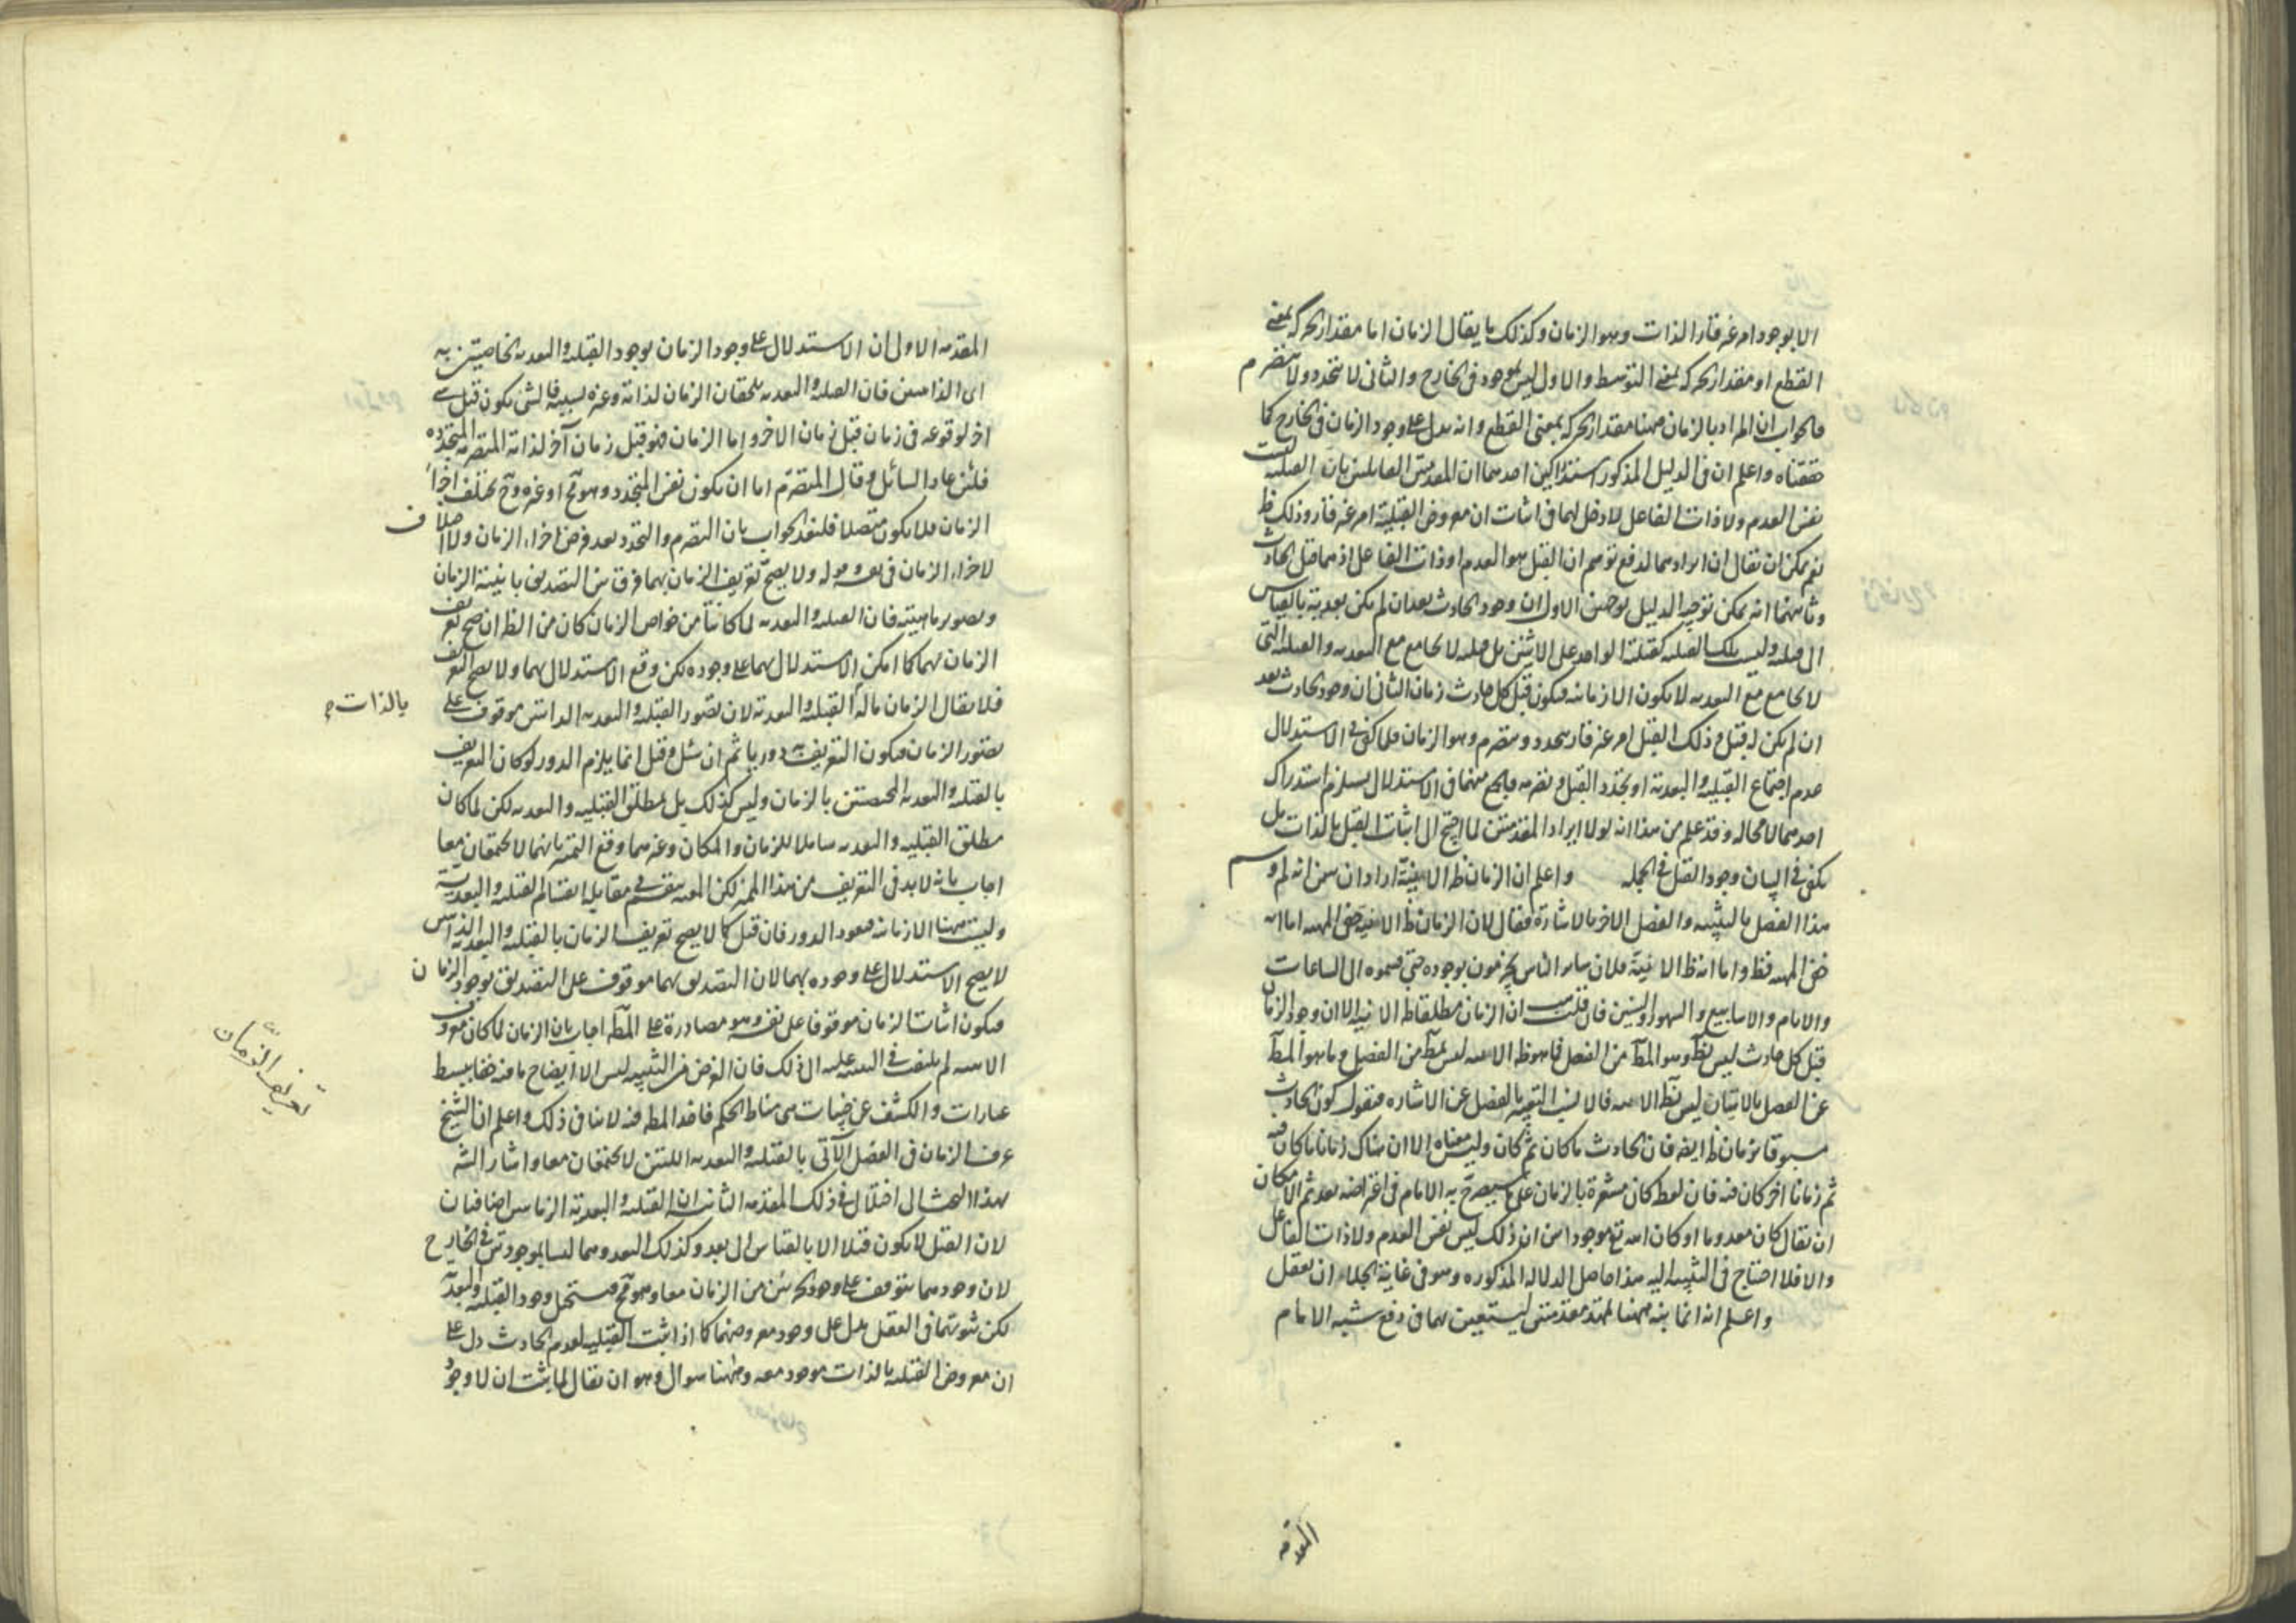 الا بوجود امر غير قار الذات وهو الزمان وكذلك ما يقال الزمان اما مقدار الحركة بمعنى
القطع او مقدار الحركة بمعنى التوسط والاول ليس بموجود فى الخارج والثانى لا يتجدد ولا يتصرم
فالجواب ان المراد بالزمان ههنا مقدار الحركة بمعنى القطع وانه يدل على وجود الزمان فى الخارج كما
حققناه واعلم ان فى الدليل المذكور استدراكين احدهما ان المقدمتين القايلتين بان القبلية ليست
نفس العدم ولا ذات الفاعل لا دخل لهما فى اثبات ان معروض القبلية امر غير قار وذلك ظ
نعم يمكن ان يقال ان ايرادهما لدفع توهم ان القبل هو العدم او ذات الفاعل اذ هما قبل الحادث
وثانيهما انه يمكن توجيه الدليل بوجهين الاول ان وجود الحادث بعد ان لم يكن بعدية بالقياس
الى قبلية وليس تلك القبلية كقبلية الواحد على الاثنين بل قبلية لا يجامع مع البعدية والقبلية التى
لا يجامع مع البعدية لا يكون الا زمانية فيكون قبل كل حادث زمان الثانى ان وجود الحادث بعد
ان لم يكن له قبل وذلك القبل امر غير قار يتجدد ويتصرم وهو الزمان فلما كفى فى الاستدلال
عدم اجتماع القبلية والبعدية او تجدد القبل وتصرمه فالجمع بينهما فى الاستدلال يستلزم استدراك
احدهما لا محالة وقد علم من هذا انه لولا ايراد المقدمتين لما احتيج الى اثبات القبل بالذات بل
يكفى فى البيان وجود القبل فى الجملة واعلم ان الزمان ظ الانية اراد ان يبين انه لم وسم
هذا الفصل بالتنبيه والفصل الاخر بالاشارة فقال لان الزمان ظ الانية خفى المهية اما انه
خفى المهية فظ واما انه ظ الانية فلان ساير الناس يجزمون بوجوده حتى قسموه الى الساعات
والايام والاسابيع والشهور والسنين فان قلت هب ان الزمان مطلقا ظ الانية الا ان وجود الزمان
قبل كل حادث ليس بظ وهو المط من الفصل فما هو ظ الانية ليس بمط من الفصل وما هو المط
من الفصل بالاتيان ليس بظ الانية فلا يناسب التعبير بالفصل عن الاشارة فنقول كون الحادث
مسبوقا بزمان ظ ايضا فان الحادث ما كان ثم كان وليس معناه الا ان هناك زمانا ما كان فيه
ثم زمانا اخر كان فيه فان لفظ كان مشعرة بالزمان على ما سيصرح به الامام فى اعتراضه بعد ثم الامكان
ان يقال كان معدوما او كان الله تع موجودا بين ان ذلك ليس نفس العدم ولا ذات الفاعل
والا فلا احتياج فى التنبيه اليه هذا حاصل الدلالة المذكورة وهو فى غاية الجلاء ان تعقل
واعلم انه انما بنه ههنا لتمهد مقدمتين ليستعين بهما فى دفع شبه الامام
المقدمة
المقدمة الاولى ان الاستدلال على وجود الزمان بوجود القبلية والبعدية الخاصيتين به
اى الذاتيتين فان القبلية والبعدية يلحقان الزمان لذاته وغيره بسببه فالشئ يكون قبل شئ
اخر لوقوعه فى زمان قبل زمان الاخر واما الزمان فهو قبل زمان آخر لذاته المتصرمة المتجددة
فلئن عاد السائل وقال المتصرم اما ان يكون نفس المتجدد وهو مح او غيره وح يختلف اجزاء
الزمان فلا يكون متصلا فلنعد الجواب بان التصرم والتجدد بعد فرض اجزاء الزمان ولا اختلاف
لاجزاء الزمان فى نفسه وقوله ولا يصح تعريف الزمان بهما فرق بين التصديق بانية الزمان
وتصور ماهيته فان القبلية والبعدية لما كانتا من خواص الزمان كان من الظ ان صح تعريف
الزمان بهما كما امكن الاستدلال بهما على وجوده لكن وقع الاستدلال بهما ولا يصح التعريف
فلا يقال الزمان ماله القبلية والبعدية لان تصور القبلية والبعدية الذاتيتين موقوف على
بالذات
تصور الزمان فيكون التعريف به دوريا ثم ان سئل وقيل انما يلزم الدور لو كان التعريف
بالقبلية والبعدية المختصتين بالزمان وليس كذلك بل بمطلق القبلية والبعدية لكن لما كان
مطلق القبلية والبعدية شاملا للزمان والمكان وغيرهما وقع التميز بانهما لا يجتمعان معا
اجاب بانه لا بد فى التعريف من هذا المميز لكن المعية ينقسم فى مقابل انقسام القبلية والبعدية
وليست ههنا الا زمانية فيعود الدور فان قيل كما لا يصح تعريف الزمان بالقبلية والبعدية الذاتيتين
لا يصح الاستدلال على وجوده بهما لان التصديق بهما موقوف على التصديق بوجود الزمان
فيكون اثبات الزمان موقوفا على نفسه وهو مصادرة على المط اجاب بان الزمان لما كان معروف
الانية لم يلتفت فى التنبيه عليه الى ذلك فان الغرض من التنبيه ليس الا ايضاح ما فيه خفا ببسط
عبارات والكشف عن حيثيات هى مناط الحكم فاخذ المط فيه لا ينافى ذلك واعلم ان الشيخ
عرف الزمان فى الفصل الآتى بالقبلية والبعدية اللتين لا يجتمعان معا واشار الشه
بهذا البحث الى اختلال فى ذلك المقدمة الثانية ان القبلية والبعدية الزمانيتين اضافيتان
لان القبل لا يكون قبلا الا بالقياس الى بعد وكذلك البعد وهما ليسا بموجودتين فى الخارج
لان وجودهما يتوقف على وجود الجزئين من الزمان معا وهو مح فيستحيل وجود القبلية والبعدية
لكن ثبوتهما فى العقل يدل على وجود معروضهما كما اذا ثبت القبلية لعدم الحادث دل على
ان معروض القبلية بالذات موجود معه وههنا سوال وهو ان يقال لما ثبت ان لا وجود
تعريف الزمان